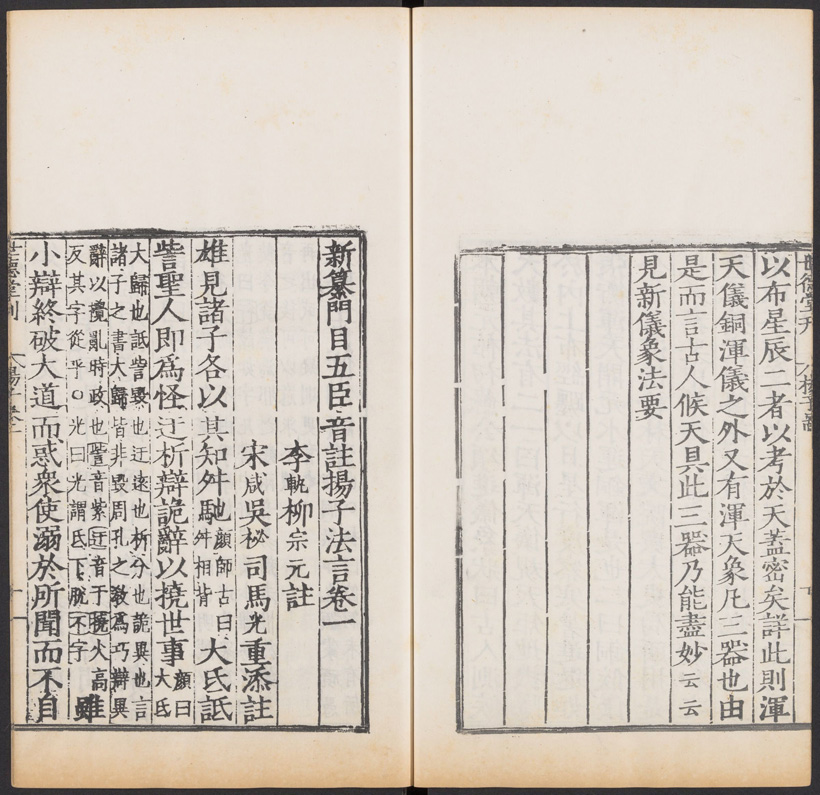 以布星辰二者以考於天蓋密矣詳此則渾
天儀銅渾儀之外又有渾天象凡三器也由
是而言古人候天具此三器乃能盡妙云云
見新儀象法要
新纂門目五臣音註揚子法言卷一
李軌柳宗元註
宋咸吳祕司馬光重添註
雄見諸子各以其知舛馳顏師古曰舛相背也大氐詆
訾聖人即爲怪迂析辯詭辭以撓世事顏曰大氐
大歸也詆訾毀也迂遠也析分也詭異也言
諸子之書大歸皆非毀周孔之教爲巧辯異
辭以攪亂時政也訾音紫迂音于撓火高
反其字從乎○光曰光謂氐下脫不字雖
小辯終破大道而惑衆使溺於所聞而不自
世德堂刊